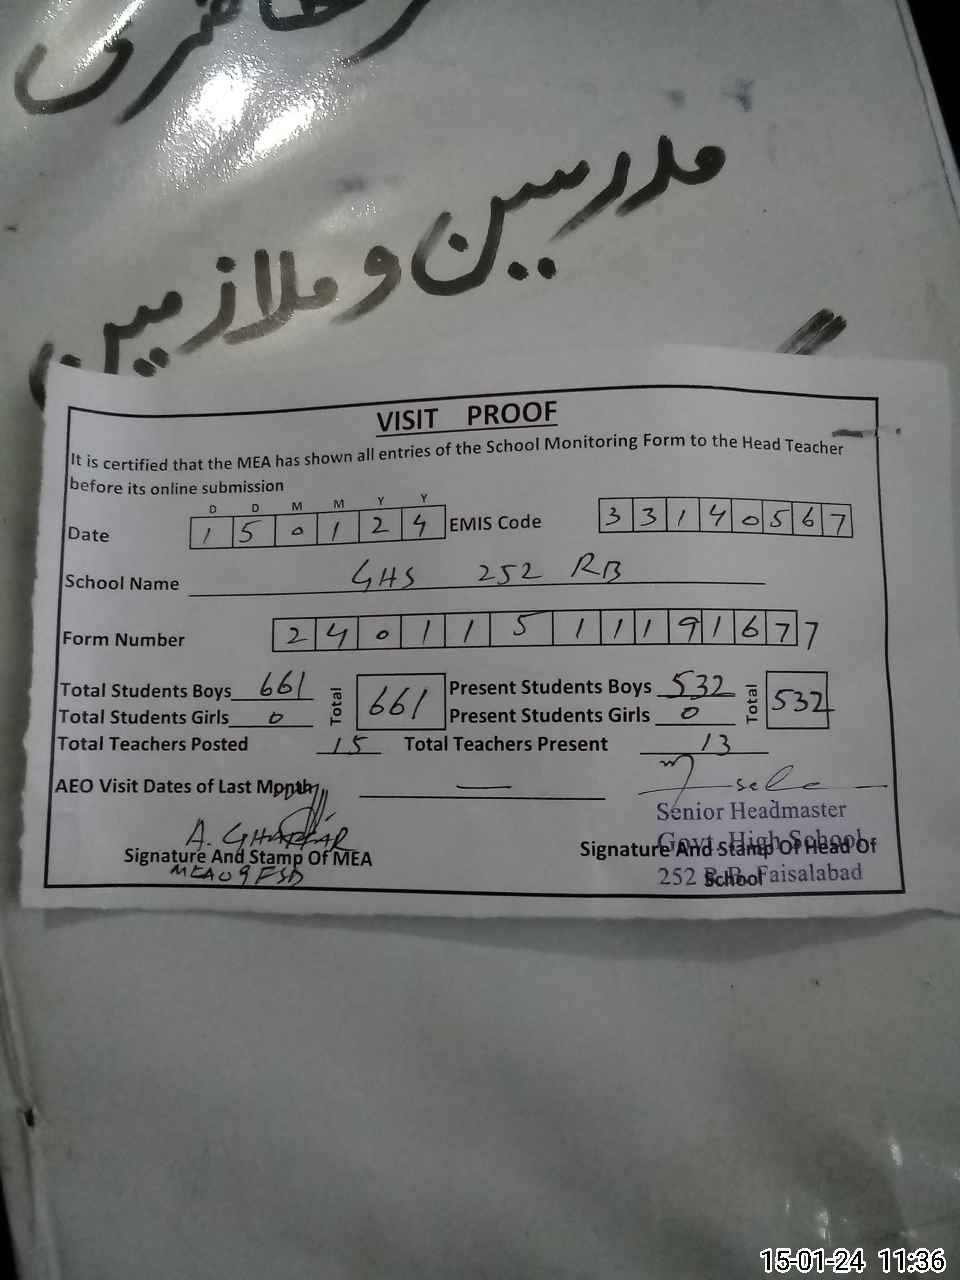 مدرسین و ملازمین
VISIT PROOF
It is certified that the MEA has shown all entries of the School Monitoring Form to the Head Teacher
before its online submission
D D M M Y Y
Date 1 5 0 1 2 4 EMIS Code 3 3 1 4 0 5 6 7
School Name GHS 252 RB
Form Number 2 4 0 1 1 5 1 1 1 9 1 6 7 7
Total Students Boys 661 Total 661 Present Students Boys 532 Total 532
Total Students Girls 0 Present Students Girls 0
Total Teachers Posted 15 Total Teachers Present 13
AEO Visit Dates of Last Month —
A. GHAFFAR
Signature And Stamp Of MEA
MEA 09 FSD
Senior Headmaster
Govt. High School
Signature And Stamp Of Head Of
School
252 R.B. Faisalabad
15-01-24 11:36